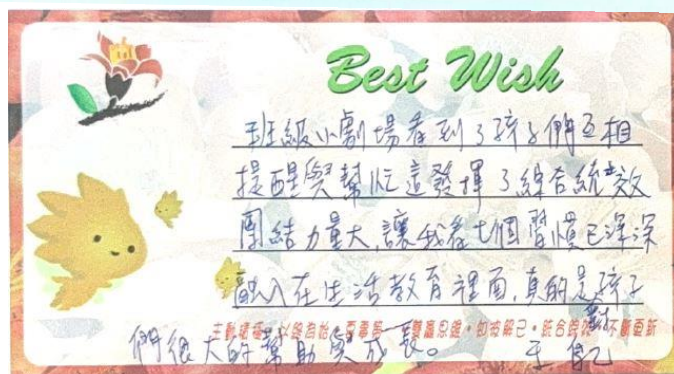 Best Wish
班級小劇場看到了孩子們互相
提醒與幫忙這發揮了綜合統效
團結力量大,讓我看七個習慣已深深
融入在生活教育裡面,真的是孩子
主動積極・以終為始・要事第一・雙贏思維・知彼解己・統合綜效・不斷更新
們很大的幫助與成長。